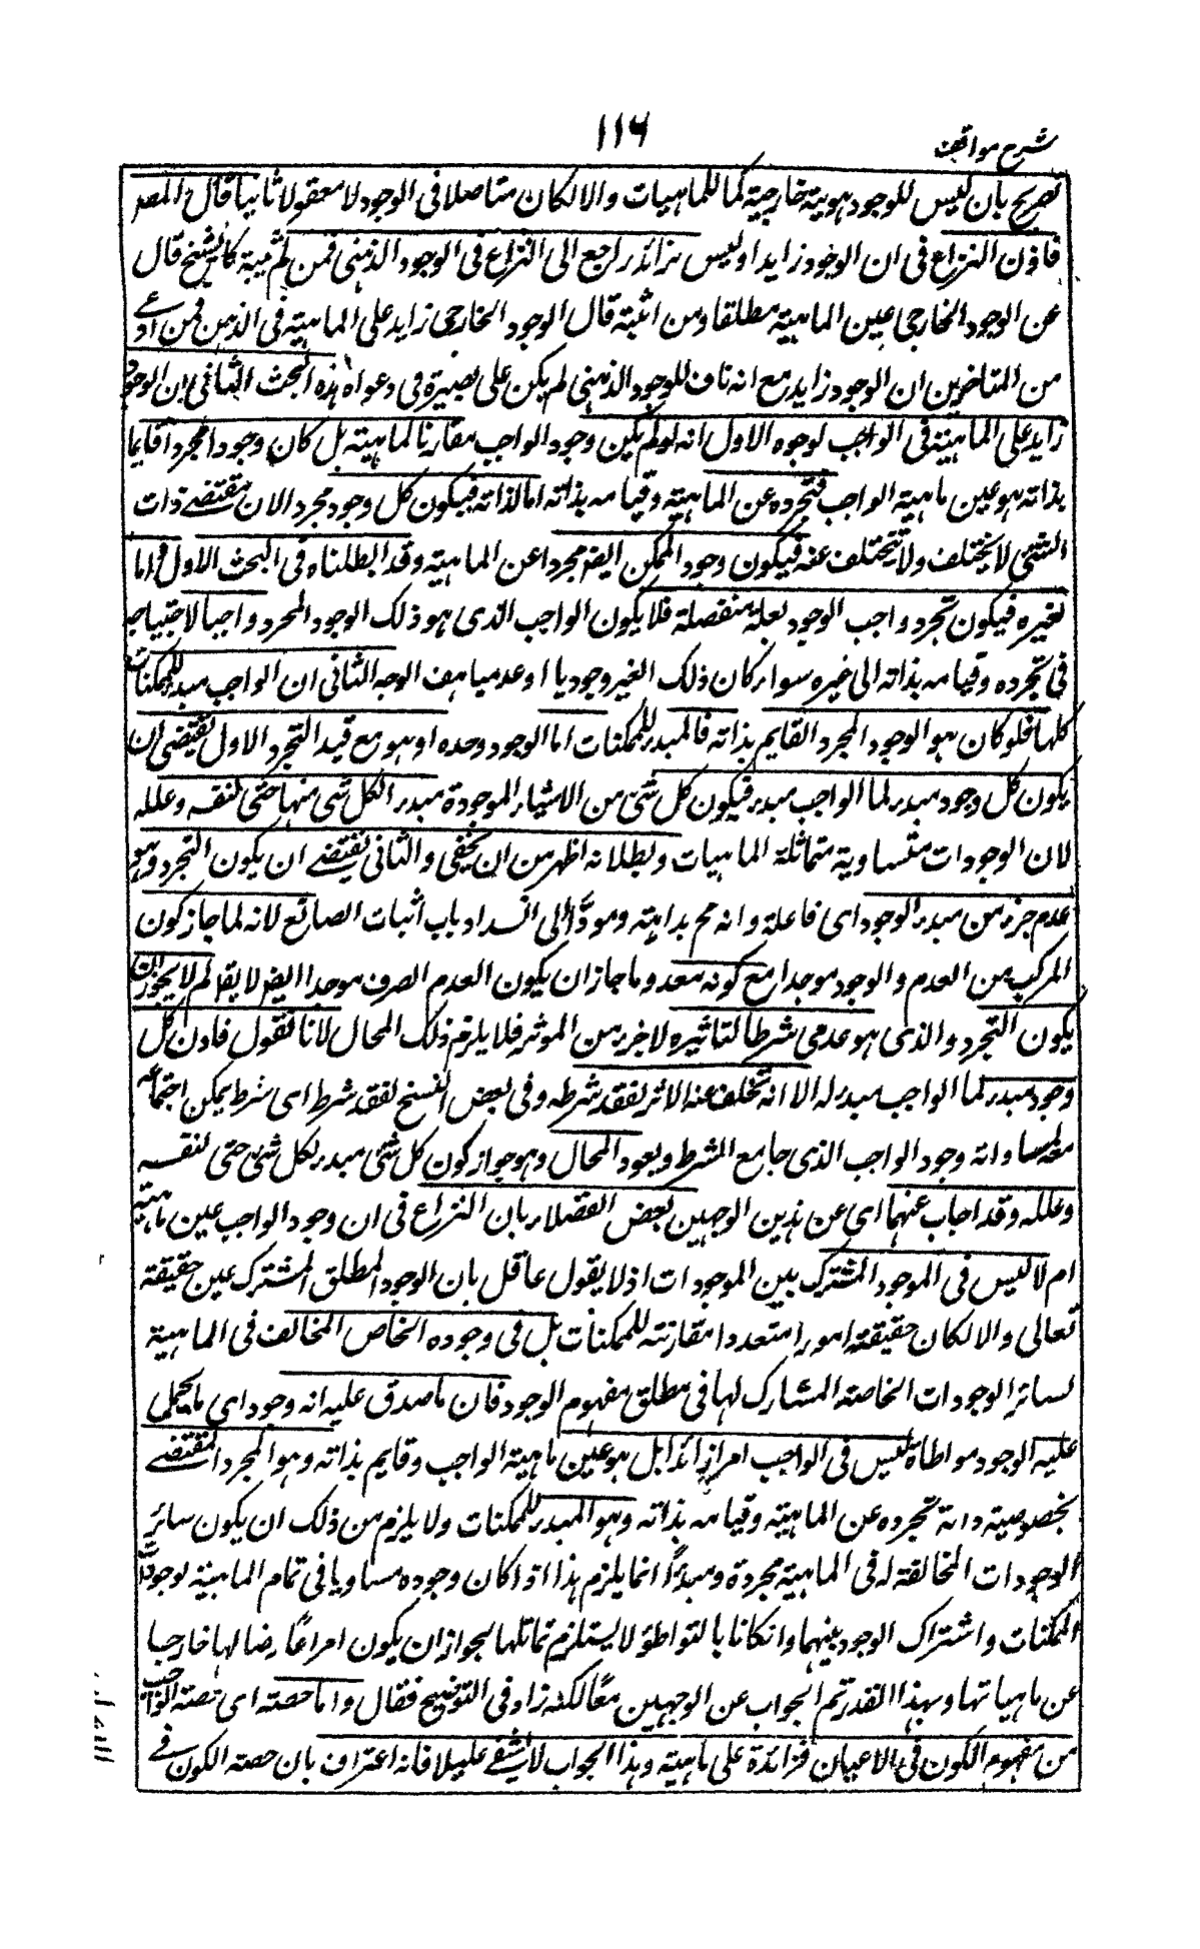 شرح مواقف
١١٦
تصريح بان ليس للوجود هوية خارجية كما للماهيات والا لكان متاصلا فى الوجود لا معقولا ثانيا قال المصر
فاذن النزاع فى ان الوجود زايد او ليس بزائد راجع الى النزاع فى الوجود الذهنى فمن لم يثبته كالشيخ قال
عن الوجود الخارجى عين الماهية مطلقا ومن اثبته قال الوجود الخارجى زايد على الماهية فى الذهن فمن ادعى
من المتاخرين ان الوجود زايد مع انه ناف للوجود الذهنى لم يكن على بصيرة فى دعواه هذه البحث الثانى ان الوجود
زايد على الماهية فى الواجب لوجوه الاول انه لو لم يكن وجود الواجب مقارنا لماهية بل كان وجودا مجردا قايما
بذاته هو عين ماهية الواجب فتجرده عن الماهية وقيامه بذاته اما لذاته فيكون كل وجود مجرد الان مقتضى ذات
الشئى لا يختلف ولا يتخلف عنه فيكون وجود الممكن ايضا مجردا عن الماهية وقد ابطلناه فى البحث الاول واما
لغيره فيكون تجرد واجب الوجود بعلة منفصلة فلا يكون الواجب الذى هو ذلك الوجود المجرد واجبا لاحتياجه
فى تجرده وقيامه بذاته الى غيره سواء كان ذلك الغير وجوديا او عدميا هف الوجه الثانى ان الواجب مبدء للممكنات
كلها فلو كان هو الوجود المجرد القايم بذاته فالمبدء للممكنات اما الوجود وحده او هو مع قيد التجرد الاول يقتضى ان
يكون كل وجود مبدء لما الواجب مبدء فيكون كل شئ من الاشياء الموجودة مبدء الكل شى منها حتى لنفسه وعلله
لان الوجودات متساوية متماثلة الماهيات وبطلانه اظهر من ان يخفى والثانى يقتضى ان يكون التجرد وهو
عدم جزء من مبدء الوجود اى فاعلة وانه مح بداهة ومودّ الى انسداد باب اثبات الصانع لانه لما جاز كون
المركب من العدم والوجود موجدا مع كونه معدوما جاز ان يكون العدم الصرف موجدا ايضا لا يقال لم لا يجوز ان
يكون التجرد والذى هو عدمى شرطا لتاثيره لا جزء من الموثر فلا يلزم ذلك المحال لانا نقول فاذن كل
وجود مبدء لما الواجب مبدء له الا انه تخلف عنه الاثر لفقد شرطه وفى بعض النسخ لفقد شرط اى شرط يمكن اجتماعه
معه لمساواته وجود الواجب الذى جامع الشرط ويعود المحال وهو جواز كون كل شئى مبدء لكل شئ حتى لنفسه
وعلله وقد اجاب عنهما اى عن هذين الوجهين بعض الفضلاء بان النزاع فى ان وجود الواجب عين ماهيته
ام لا ليس فى الموجود المشترك بين الموجودات اذ لا يقول عاقل بان الوجود المطلق المشترك عين حقيقته
تعالى والا لكان حقيقته امورا متعددا مقارنته للممكنات بل فى وجوده الخاص المخالف فى الماهية
لسائر الوجودات الخاصة المشارك لها فى مطلق مفهوم الوجود فان ما صدق عليه انه وجود اى ما يحمل
عليه الوجود مواطاة ليس فى الواجب امرا زائدا بل هو عين ماهية الواجب وقايم بذاته وهو المجرد المقتضى
بخصوصية ذاته تجرده عن الماهية وقيامه بذاته وهو المبدء للممكنات ولا يلزم من ذلك ان يكون سائر
الوجودات المخالفة له فى الماهية مجردة ومبدءً انما يلزم هذا اذا كان وجوده مساويا فى تمام الماهية لوجود
الممكنات واشتراك الوجود بينهما وان كانا بالتواطؤ لا يستلزم تماثلها لجواز ان يكون امرا عارضا لها خارجيا
عن ماهياتها وبهذا القدر تم الجواب عن الوجهين معا لكنه زاد فى التوضيح فقال واما حصته اى حصة الواجب
من مفهوم الكون فى الاعيان فزائدة على ماهية وهذا الجواب لا يشفى عليلا فانه اعتراف بان حصة الكون فى